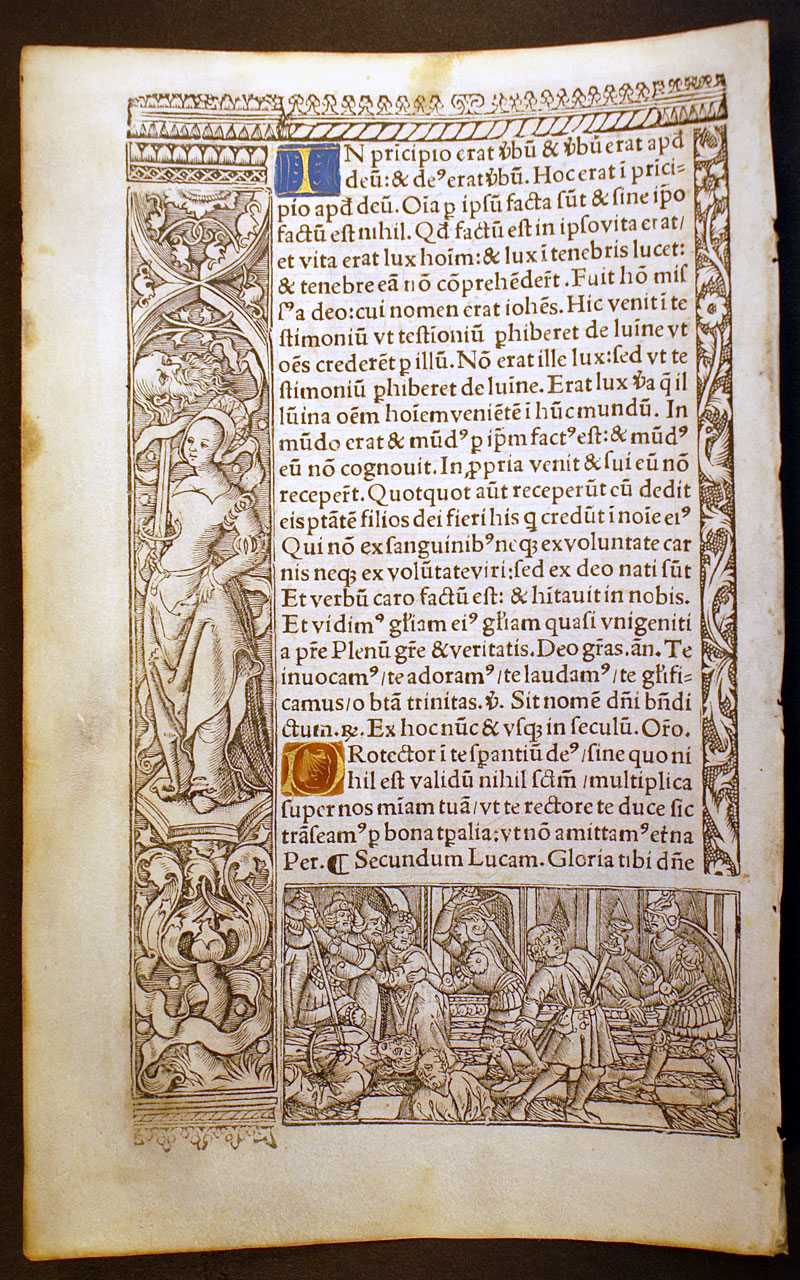 IN pricipio erat v̄bū & v̄bū erat apđ
deū: & de⁹ erat v̄bū. Hoc erat ī prīci=
pio apđ deū. Oīa ꝑ ipsū facta sūt & sine ip̄o
factū est nihil. Qđ factū est in ipso vita erat/
et vita erat lux hoīm: & lux ī tenebris lucet:
& tenebre eā nō cōprehēder̄t. Fuit hō mis
sꝰa deo: cui nomen erat iohēs. Hic venit ī te
stimoniū vt testīoniū ꝑhiberet de luīne vt
oēs crederēt ꝑ illū. Nō erat ille lux: sed vt te
stimoniū ꝑhiberet de luīne. Erat lux v̄a q̄ il
lūina oēm hoīem veniētē ī hūc mundū. In
mūdo erat & mūd⁹ ꝑ ip̄m fact⁹ est: & mūd⁹
eū nō cognouit. In ꝓpria venit & sui eū nō
receper̄t. Quotquot aūt receperūt eū dedit
eis ptātē filios dei fieri his q̨ credūt ī noīe ei⁹
Qui nō ex sanguinib⁹ neqꝫ ex voluntate car
nis neqꝫ ex volūtate viri: sed ex deo nati sūt
Et verbū caro factū est: & hītauit in nobis.
Et vidim⁹ gl̄iam ei⁹ gl̄iam quasi vnigeniti
a pr̄e Plenū gr̄e & veritatis. Deo gr̄as. āñ. Te
inuocam⁹/te adoram⁹/te laudam⁹/te gl̄ifi=
camus/o btā trinitas. ℣. Sit nomē dñi bñdi
ctum. ℟. Ex hoc nūc & vsqꝫ in seculū. Or̄o.
PRotector ī te sꝑantiū de⁹/sine quo ni
hil est validū nihil sctm̄/multiplica
super nos mīam tuā/vt te rectore te duce sic
trāseam⁹ ꝑ bona tpalia: vt nō amittam⁹ et̄na
Per. ¶ Secundum Lucam. Gloria tibi dñe